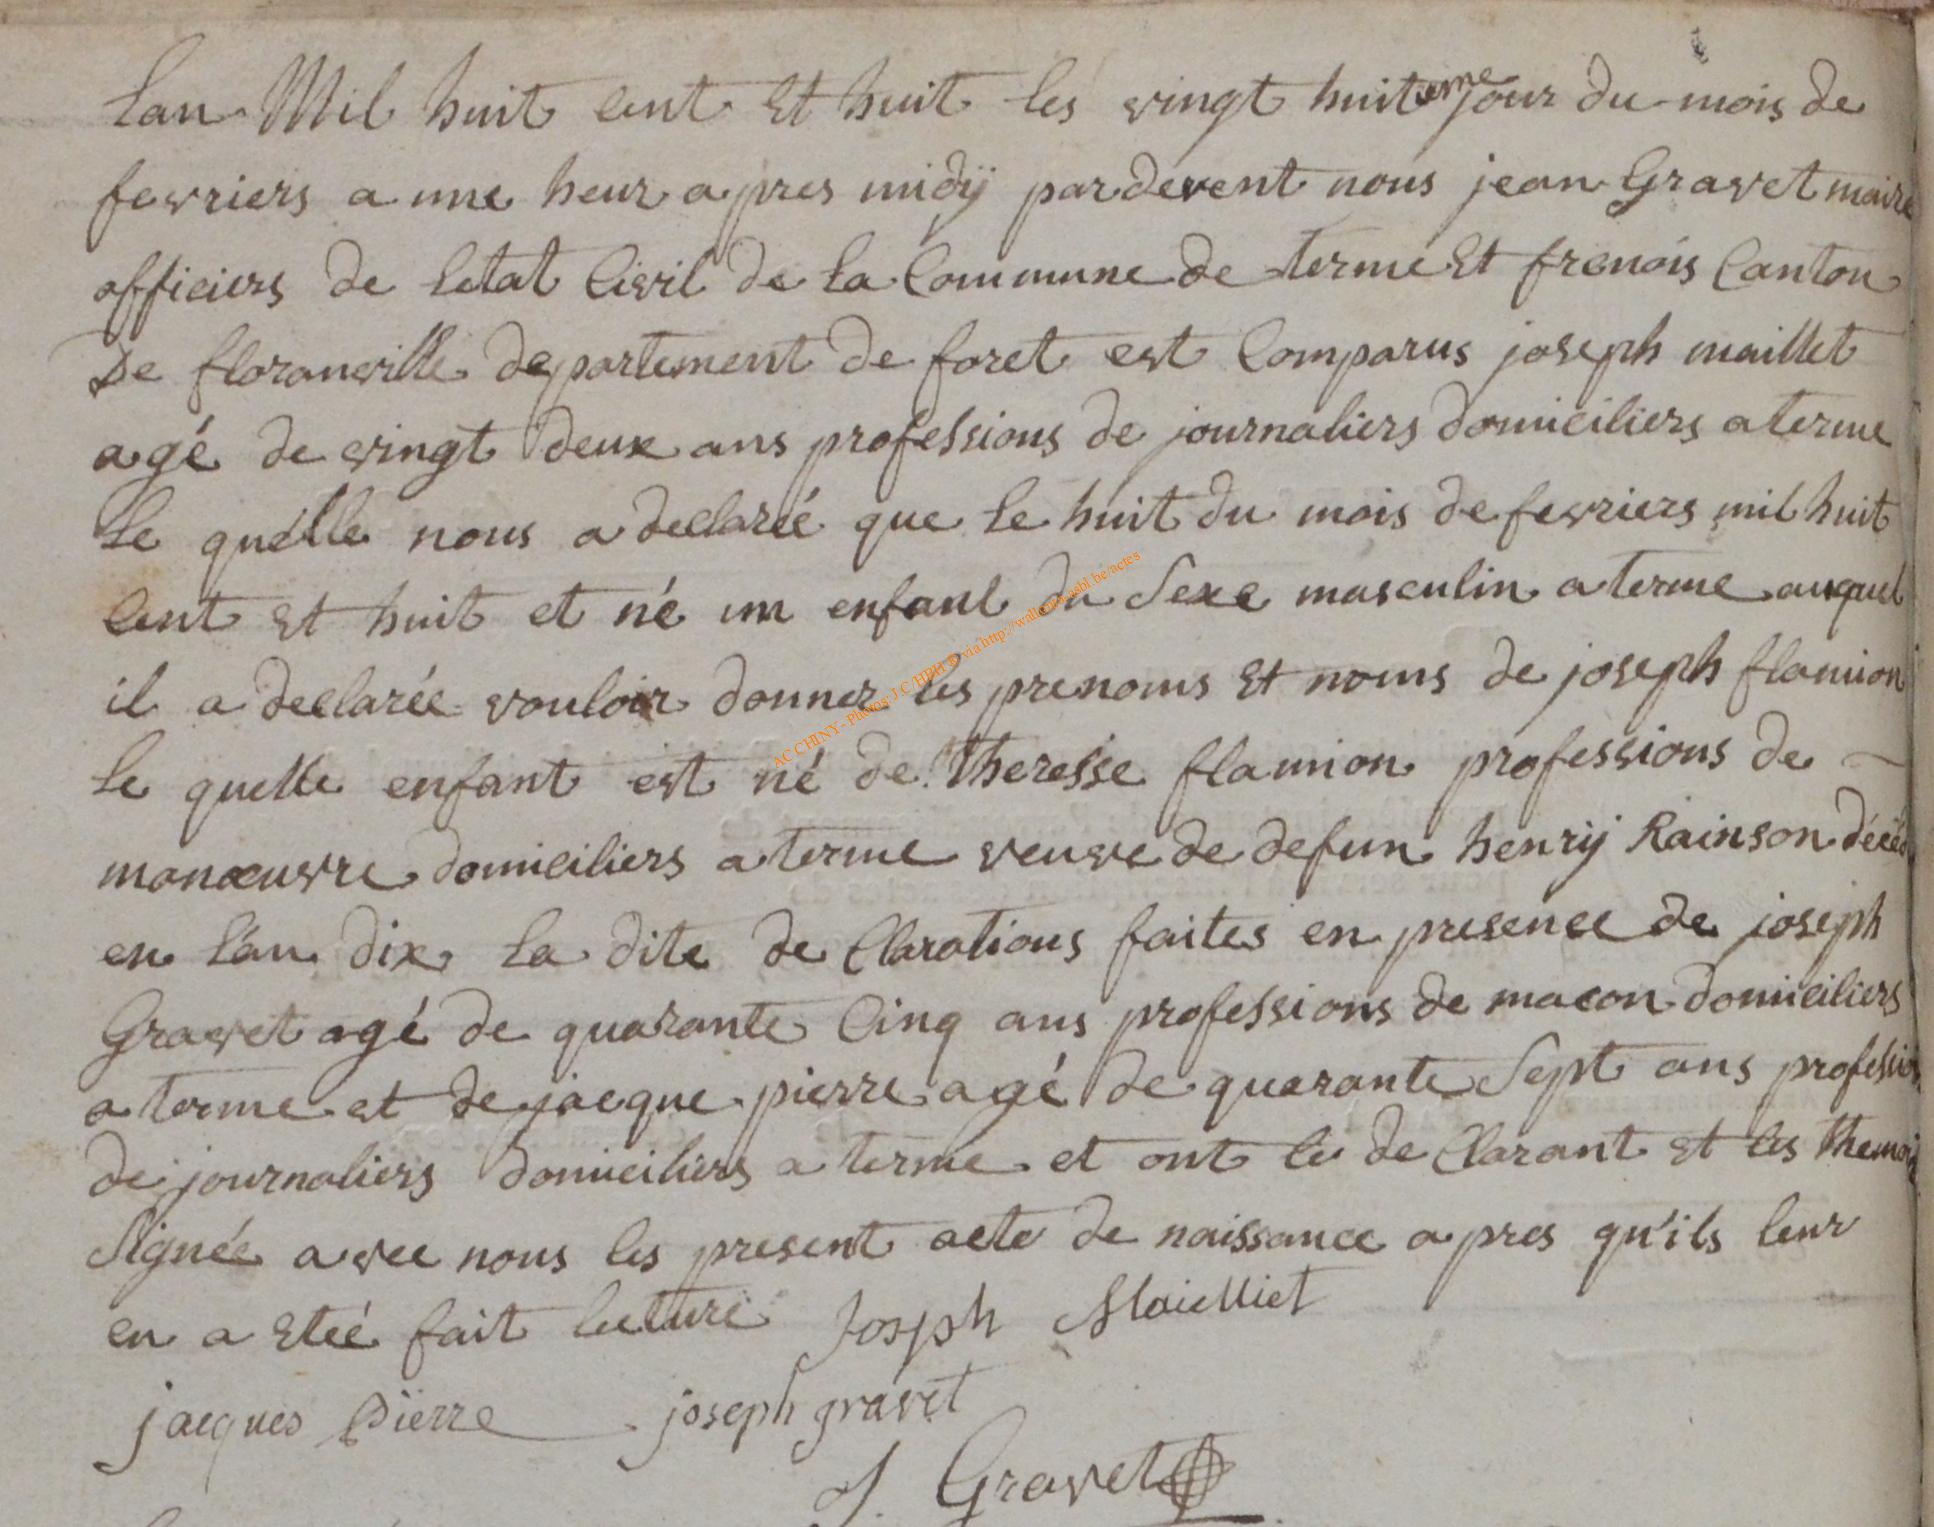 Lan Mil huit Cent Et huit les vingt huiteme jour du mois de
fevriers a une heur apres midÿ pardevent nous jean Gravet maire
officiers de letat Civil de la Commune de terme Et frenois Canton
De floranville departement de foret est Comparus joseph maillet
agé de vingt deux ans professions de journaliers domiciliers a terme
Le quélle nous a declareé que le huit du mois de fevriers mil huit
Cent Et huit et né un enfant du Sexe masculin a terme auquel
il a declarée vouloir donner les prenoms Et noms de joseph flamion
le quelle enfant est né de theresse flamion professions de
manœuvre domiciliers a terme veuve de defun henrÿ Rainson décéd
en l'an dix la dite de Clarations faites en presence de joseph
Gravet agé de quarante Cinq ans professions de macon domiciliers
a terme et de jacque pierre agé de quarante Sept ans profession
de journaliers domiciliers a terme et ont le de Clarant Et les themoin
Signée avec nous les present acte de naissance apres qu'ils leur
en a Eteé fait lecture Joseph Maielliet
jacques Pierre joseph gravet
J. Gravet
AC CHINY - Photos: J C/HPH © via http://wallonia-asbl.be/actes